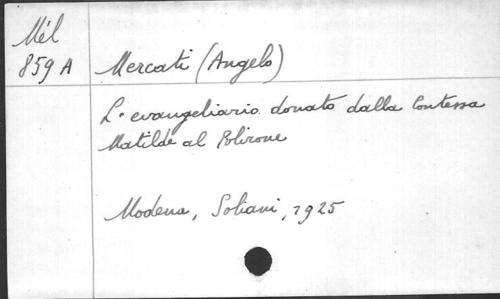 Mél
859 A Mercati (Angelo)
L'evangeliario donato dalla Contessa
Matilde al Polirone
Modena, Soliani, 1925